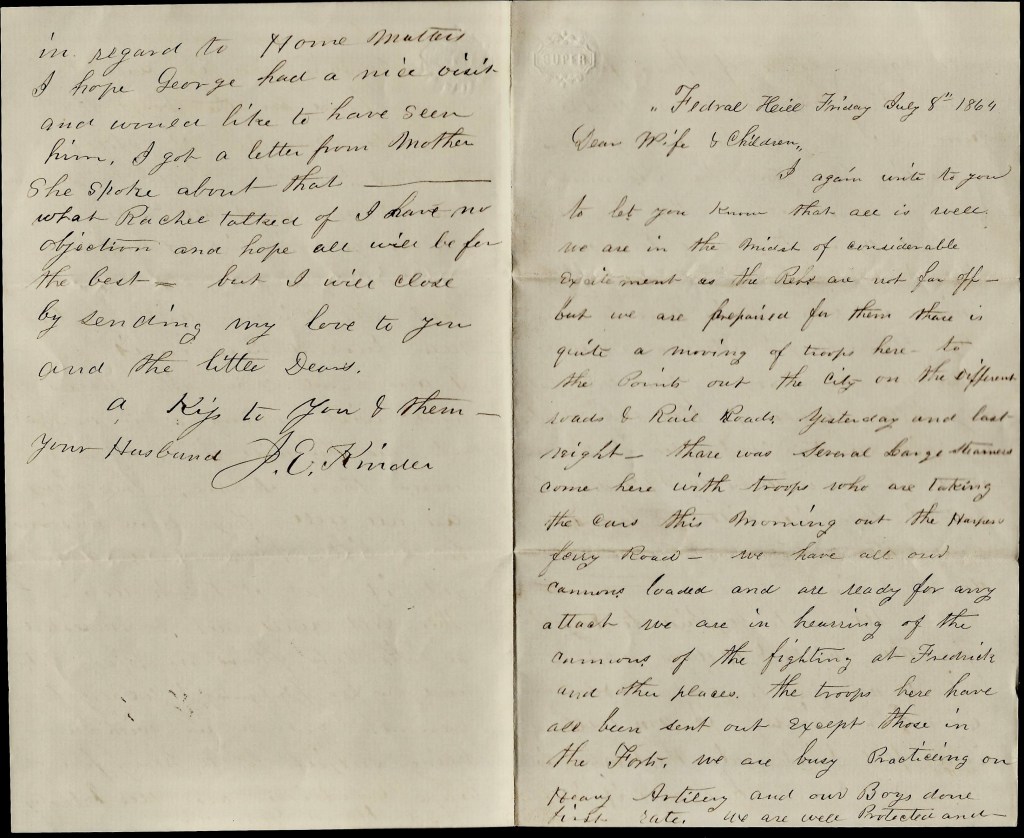 in regard to Home Matters
I hope George had a nice visit
and would like to have seen
him, I got a letter from Mother
She spoke about that ———
what Rachel talked of I have no
objection and hope all will be for
the best — but I will close
by sending my love to you
and the little Dears.
a Kiss to You & them —
your Husband J. E. Kinder
SUPER
" Fedral Hill Friday July 8th 1864
Dear Wife & Children,,
I again write to you
to let you Know that all is well.
we are in the midst of considerable
Excitement as the Rebs are not far off —
but we are prepaired for them thare is
quite a moving of troops here to
the Points out the City on the Different
roads & Rail Roads. Yesterday and last
night — thare was Several Large Steamers
come here with troops who are taking
the cars this Morning out the Harpers
ferry Road — we have all our
cannons loaded and are ready for any
attact we are in hearring of the
cannons of the fighting at Fredrick
and other places. the troops here have
all been sent out Except those in
the Forts. we are busy Practiceing on
Heavy Artilery and our Boys done
first rate. We are well Protected and —